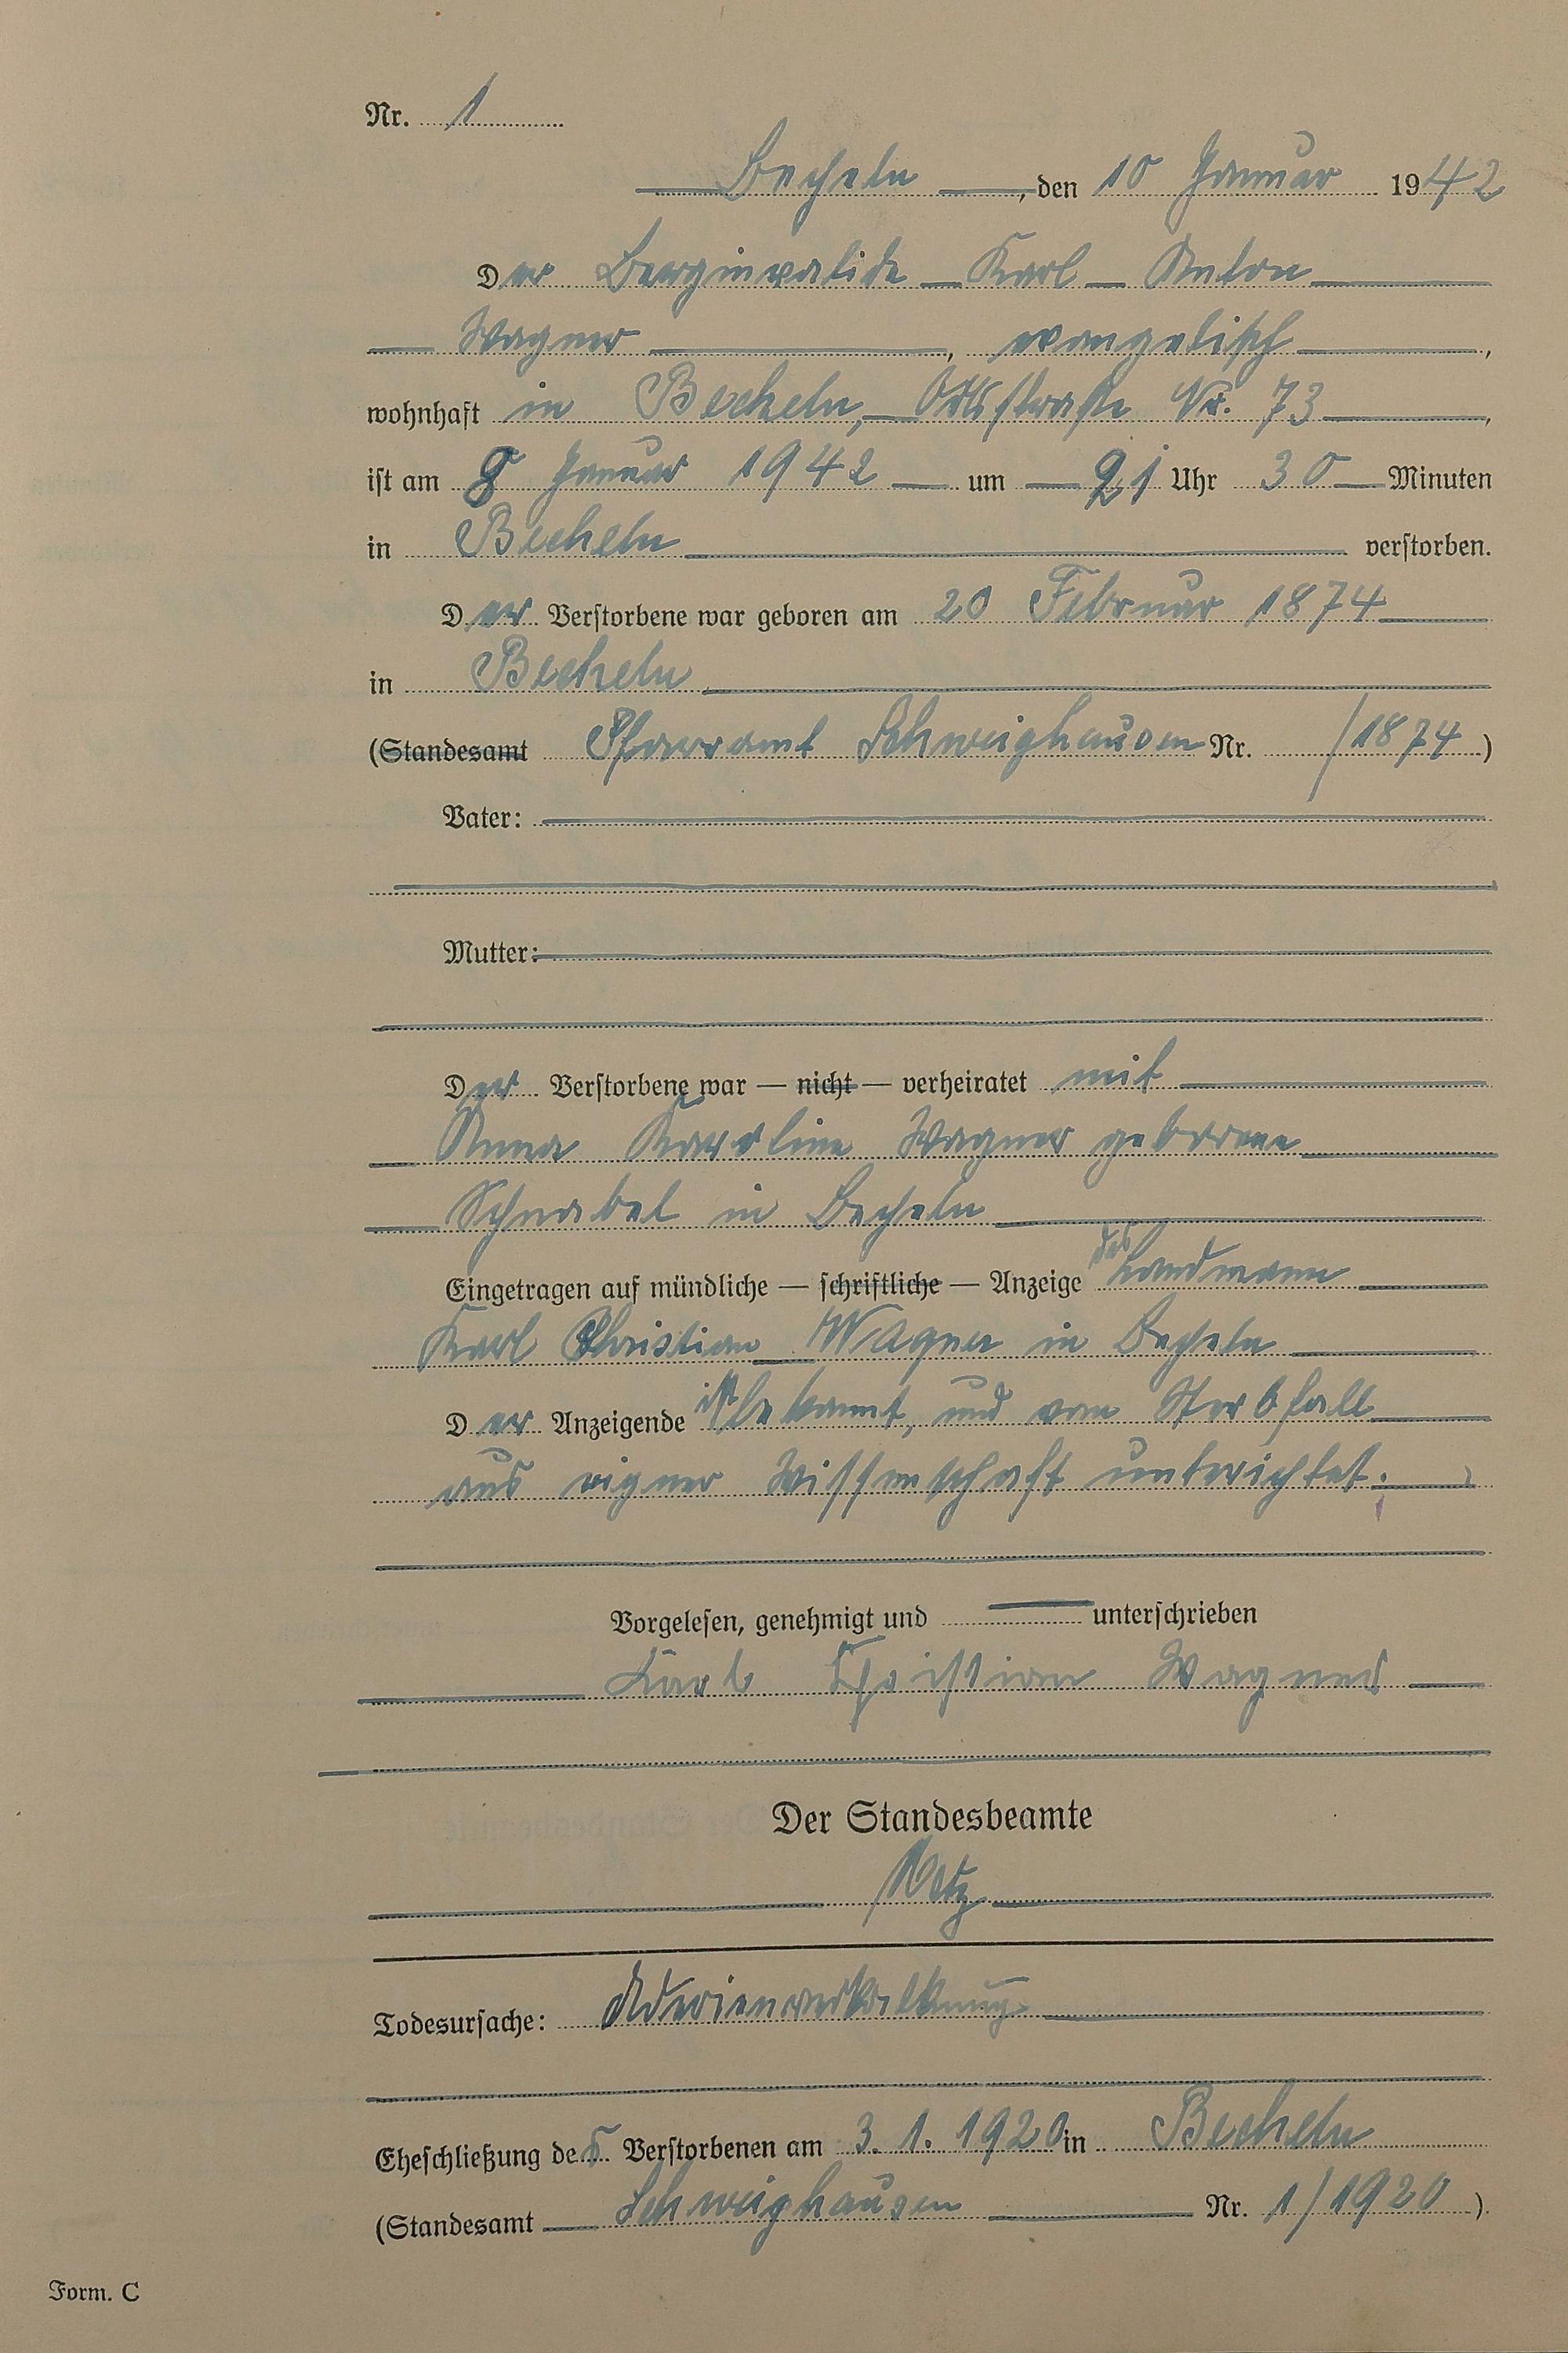 Nr. 1
Becheln, den 10 Januar 1942
Der Berginvalide Karl Anton
Wagner, evangelisch,
wohnhaft in Becheln, Ortsstraße Nr. 73,
ist am 8 Januar 1942 um 21 Uhr 30 Minuten
in Becheln verstorben.
Der Verstorbene war geboren am 20 Februar 1874
in Becheln
(Standesamt Pfarramt Schweighausen Nr. /1874)
Vater:
Mutter:
Der Verstorbene war — nicht — verheiratet mit
Anna Karoline Wagner geborene
Schnabel in Becheln
Eingetragen auf mündliche — schriftliche — Anzeige des Landmann
Karl Christian Wagner in Becheln
Der Anzeigende ist bekannt, und vom Sterbfall
aus eigner Wissenschaft unterichtet.
Vorgelesen, genehmigt und unterschrieben
Karl Christian Wagner
Der Standesbeamte
Todesursache: Aderienverkalkung
Eheschließung des Verstorbenen am 3. 1. 1920 in Becheln
(Standesamt Schweighausen Nr. 1/1920)
Form. C